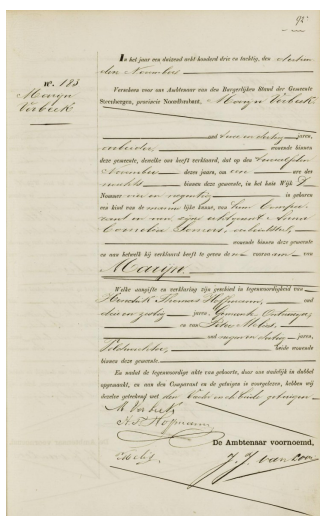 92
No. 185
Marijn
Verbeek
In het jaar een duizend acht honderd drie en tachtig, den dertien
den November
Verscheen voor ons Ambtenaar van den Burgerlijken Stand der Gemeente
Steenbergen, provincie Noordbrabant, Marijn Verbeek
oud twee en dertig jaren,
arbeider, wonende binnen
deze gemeente, dewelke ons heeft verklaard, dat op den twaalfden
November dezes jaars, om een ure des
nachts binnen deze gemeente, in het huis Wijk
Nummer vier en negentig is geboren
een kind van de mannelijke kunne, van hem Compa-
rant en van zijne echtgenoote Anna
Cornelia
wonende binnen deze gemeente
en aan hetwelk hij verklaard heeft te geven de voornaam van
Marijn
Welke aangifte en verklaring zijn geschied in tegenwoordigheid van
Hendrik Thomas Hofmann, oud
drie en zestig jaren, Gemeente Ontvanger,
en van
oud negen en dertig jaren,
veldwachter, beide wonende
binnen deze gemeente.
En nadat de tegenwoordige akte van geboorte, door ons dadelijk in dubbel
opgemaakt, en aan den Comparant en de getuigen is voorgelezen, hebben wij
dezelve geteekend met den Comparant en beide getuigen
M. Verbeek
H. T. Hofmann
De Ambtenaar voornoemd,
J. J. van Loon